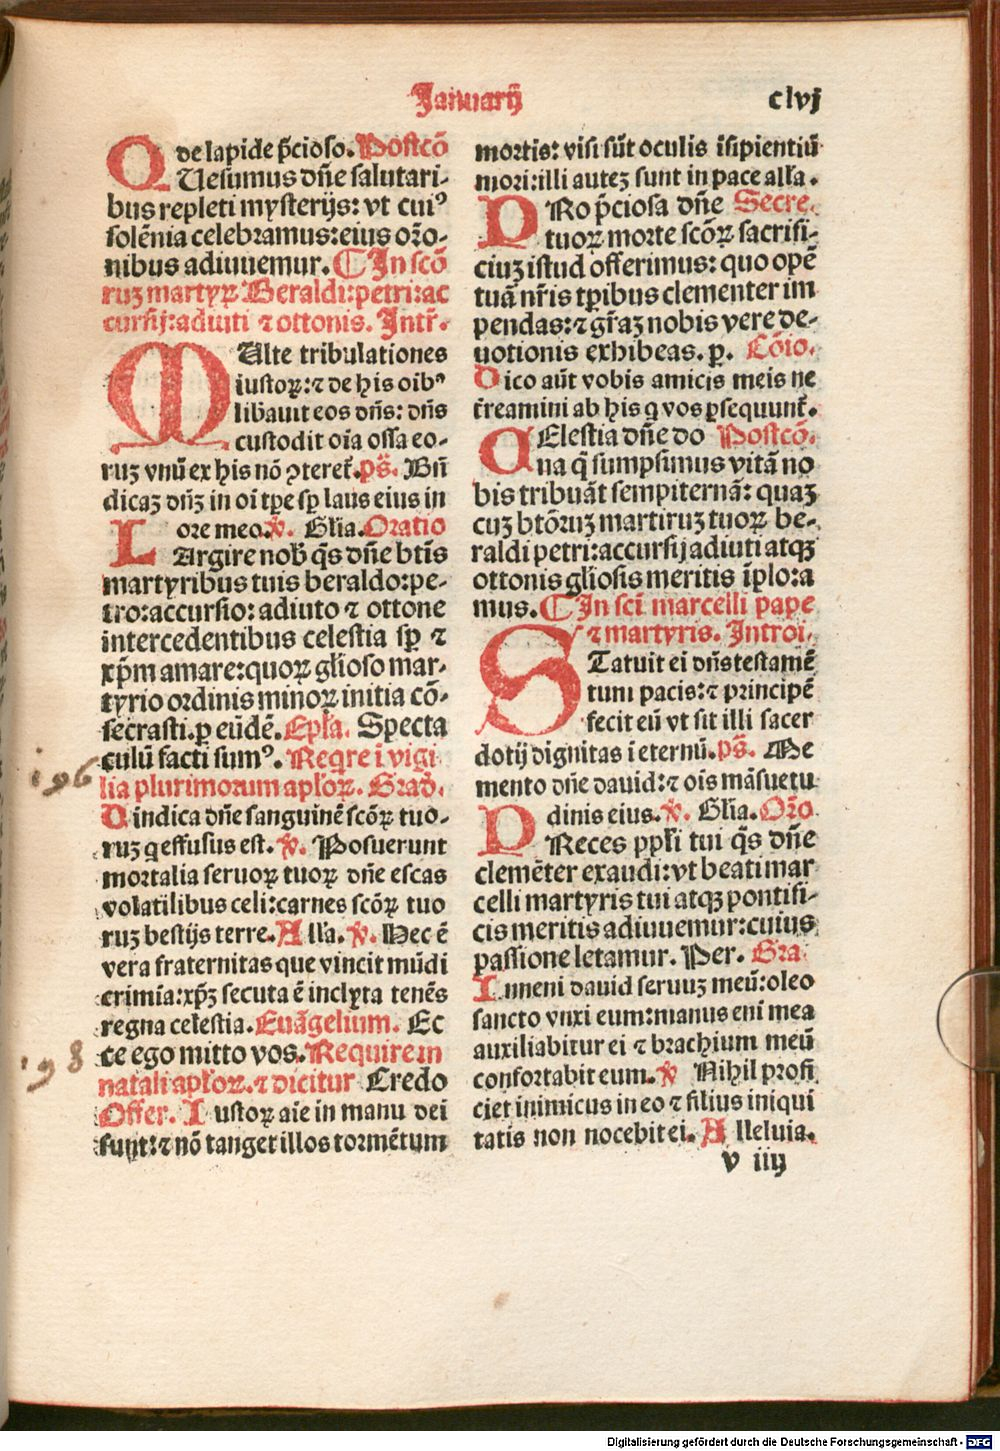 Januarij
clvj
de lapide p̄cioso. Postcō
QUesumus dn̄e salutari-
bus repleti mysterijs: vt cuiꝰ
solēnia celebramus: eius or̄o-
nibus adiuuemur. ¶ In scō
ruꝫ martyrꝝ Beraldi: petri: ac
cursij: adiuti ⁊ ottonis. Intr̄.
MUlte tribulationes
iustoꝝ: ⁊ de his oibꝰ
libauit eos dn̄s: dn̄s
custodit oīa ossa eo-
ruꝫ vnū ex his nō ꝯteret̄. ps̄. Bn̄
dicaꝫ dn̄ꝫ in oī tꝑe sꝑ laus eius in
ore meo. ℣. Glīa. Oratio
LArgire nob̄ q̄s dn̄e bt̄is
martyribus tuis beraldo: pe-
tro: accursio: adiuto ⁊ ottone
intercedentibus celestia sꝑ ⁊
xp̄m amare: quoꝝ gl̄ioso mar-
tyrio ordinis minoꝝ initia cō-
secrasti. ꝑ eūdē. Epl̄a. Specta
culū facti sumꝰ. Reqre ī vigi
196
lia plurimorum apl̄oꝝ. Grad̄.
Uindica dn̄e sanguinē scōꝝ tuo-
ruꝫ q effusus est. ℣. Posuerunt
mortalia seruoꝝ tuoꝝ dn̄e escas
volatilibus celi: carnes scōꝝ tuo
ruꝫ bestijs terre. Alla. ℣. Hec ē
vera fraternitas que vincit mūdi
crimīa: xp̄ꝫ secuta ē inclyta tenēs
regna celestia. Euāgelium. Ec
ce ego mitto vos. Require in
198
natali apl̄oꝝ. ⁊ dicitur Credo
Offer. Iustoꝝ aīe in manu dei
sunt: ⁊ nō tanget illos tormētum
mortis: visi sūt oculis īsipientiū
mori: illi auteꝫ sunt in pace alla.
PRo p̄ciosa dn̄e Secre.
tuoꝝ morte scōꝝ sacrifi-
ciuꝫ istud offerimus: quo opē
tuā nr̄is tꝑibus clementer im
pendas: ⁊ gr̄aꝫ nobis vere de-
uotionis exhibeas. ꝑ. Cōio.
Dico aūt vobis amicis meis ne
t̄reamini ab his q vos ꝑsequunt̄.
CElestia dn̄e do Postcō.
na q̄ sumpsimus vitā no
bis tribuāt sempiternā: quaꝫ
cuꝫ btōruꝫ martiruꝫ tuoꝝ be-
raldi petri: accursij adiuti atqꝫ
ottonis gl̄iosis meritis īplo: a
mus. ¶ In scī marcelli pape
⁊ martyris. Introi.
STatuit ei dn̄s testamē
tum pacis: ⁊ principē
fecit eū vt sit illi sacer
dotij dignitas ī eternū. ps̄. Me
mento dn̄e dauid: ⁊ ois māsuetu
dinis eius. ℣. Glīa. Or̄o
PReces ppl̄i tui q̄s dn̄e
clemēter exaudi: vt beati mar
celli martyris tui atqꝫ pontifi-
cis meritis adiuuemur: cuius
passione letamur. Per. Gra
Inueni dauid seruuꝫ meū: oleo
sancto vnxi eum: manus enī mea
auxiliabitur ei ⁊ brachium meū
confortabit eum. ℣ Nihil profi
ciet inimicus in eo ⁊ filius iniqui
tatis non nocebit ei. Alleluia.
v iiij
Digitalisierung gefördert durch die Deutsche Forschungsgemeinschaft - DFG